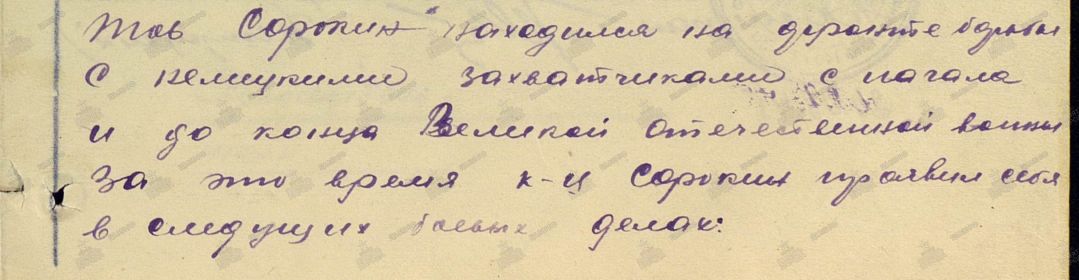 Тов Сорокин находился на фронте борьбы
с немцкими захватчиками с начала
и до конца Великой отечественной воины
За это время к-ц Сорокин проявил себя
в следущих боевых делах: